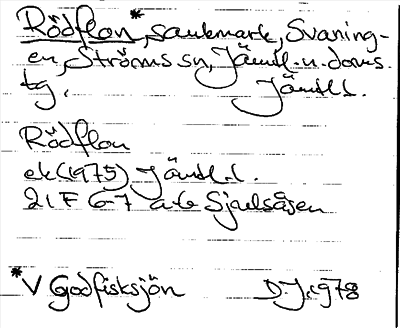 Rödflon*, sankmark, Svaning-
en, Ströms sn, Jämtl. n. doms.
tg. Jämtl l.
Rödflon
ek (1975) Jämtl. l.
21 F 6-7 a-b Sjoulsåsen
*V Godfisksjön D.J. 1978